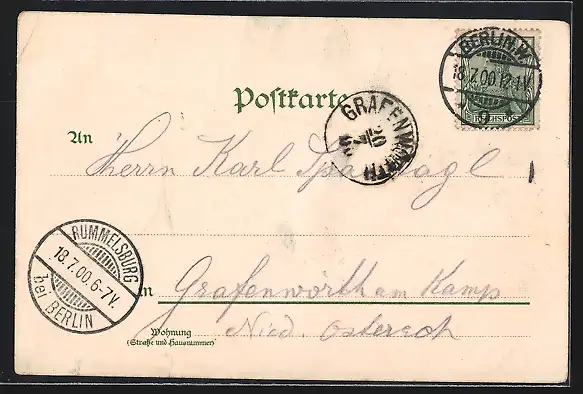 BERLIN.W.
18.7.00.12-1V.
REICHSPOST
Postkarte
GRAFENWÖRTH
20
7
An
Herrn Karl
RUMMELSBURG
18.7.00.6-7V.
bei BERLIN
in Grafenwörth am Kamp
Wohnung
(Straße und Hausnummer)
Nied. Östereich